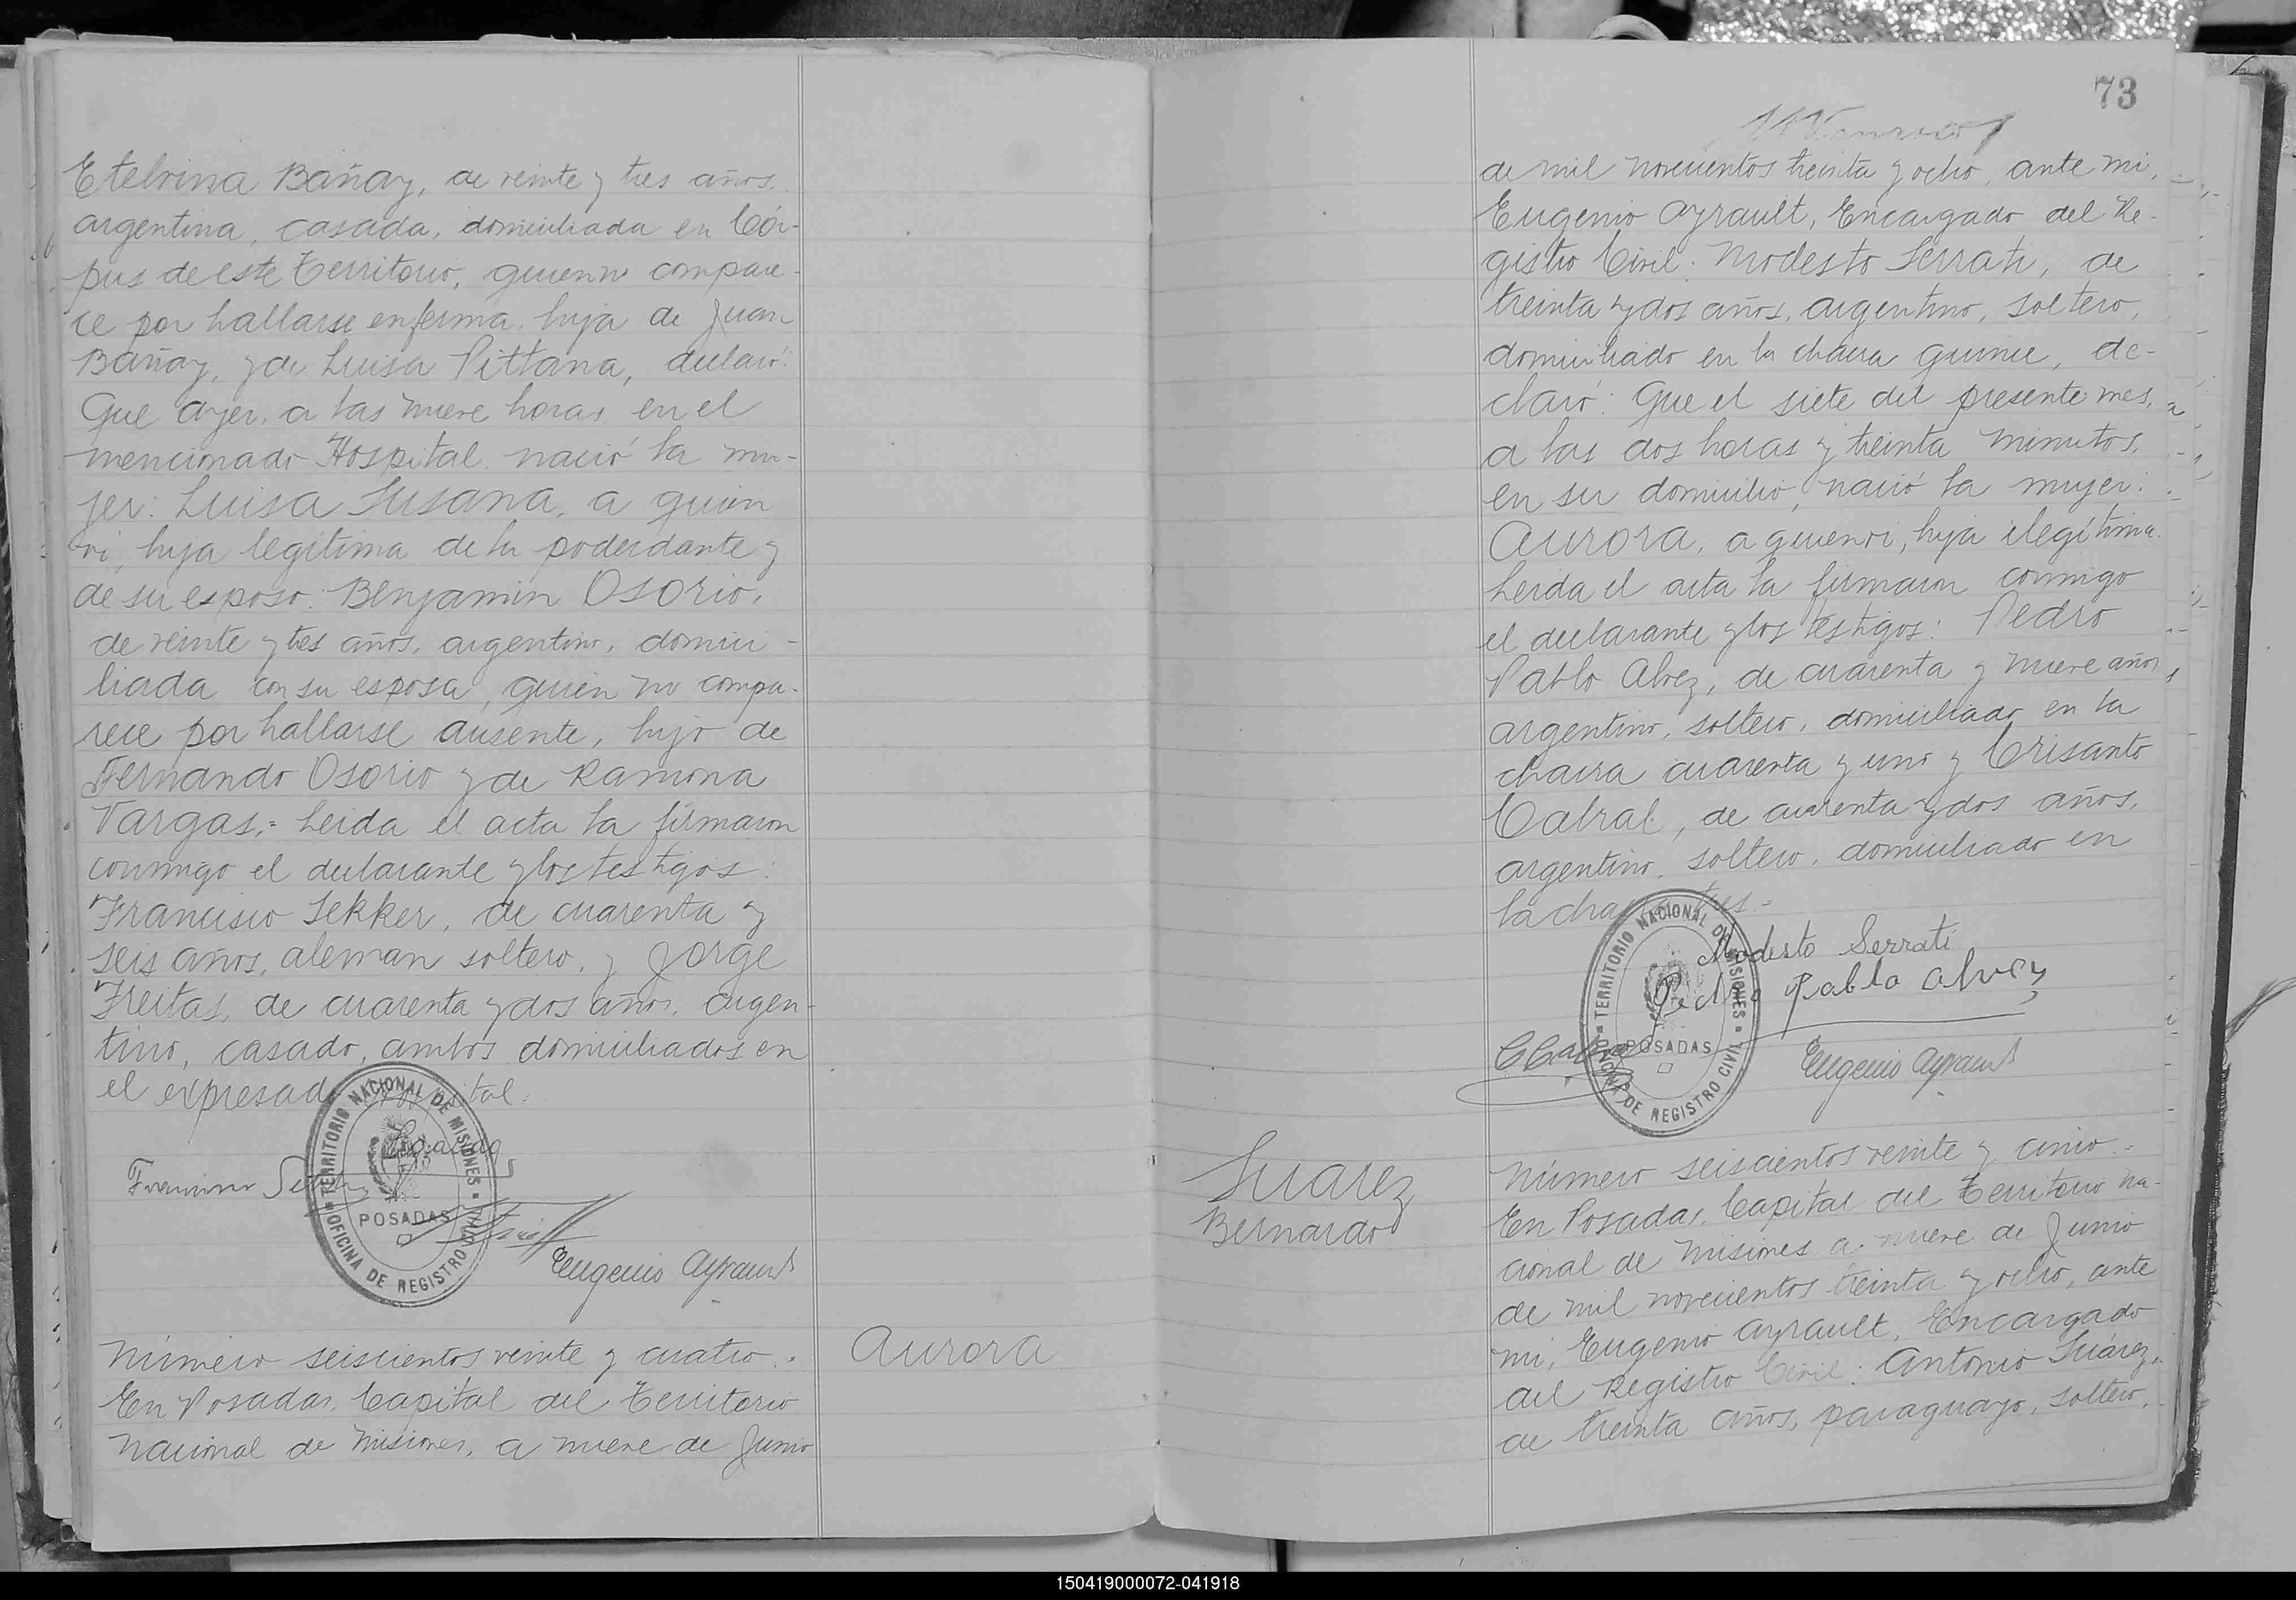 Etelvina Bañay, de veinte y tres años,
argentina, casada, domiciliada en Cór-
pus de este Territorio, quien no compare-
ce por hallarse enferma, hija de Juan
Bañay, y de Luisa Pittana, declaró:
Que ayer, a las nueve horas, en el
mencionado Hospital, nació la mu-
jer: Luisa Susana, a quien
ví, hija legítima de la poderdante y
de su esposo. Benjamin Osorio,
de veinte y tres años, argentino, domici-
liada con su esposa, quien no compa-
rece por hallarse ausente, hijo de
Fernando Osorio y de Ramona
Vargas.= Leida el acta la firmaron
conmigo el declarante y los testigos:
Francisco Sekker, de cuarenta y
seis años, aleman soltero, y Jorge
Freitas, de cuarenta y dos años, argen-
tino, casado, ambos domiciliados en
el expresado Hospital.=
TERRITORIO NACIONAL DE MISIONES
POSADAS
OFICINA DE REGISTRO CIVIL
Eugenio Ayrault
Número seiscientos veinte y cuatro.=
Aurora
En Posadas, Capital del Territorio
Nacional de Misiones, a nueve de Junio
73
de mil novecientos treinta y ocho, ante mi,
Eugenio Ayrault, Encargado del Re-
gistro Civil: Modesto Serrati, de
treinta y dos años, argentino, soltero,
domiciliado en la chacra quince, de-
claró: Que el siete del presente mes,
a las dos horas y treinta minutos,
en su domicilio, nació la mujer:
Aurora, a quien ví, hija ilegítima.
Leida el acta la firmaron conmigo
el declarante y los testigos: Pedro
Pablo Alvez, de cuarenta y nueve años,
argentino, soltero, domiciliado en la
chacra cuarenta y uno y Crisanto
Cabral, de cuarenta y dos años,
argentino, soltero, domiciliado en
la chacra tres.=
Modesto Serrati
Pedro Pablo Alvez
CCabral
Eugenio Ayrault
TERRITORIO NACIONAL DE MISIONES
POSADAS
OFICINA DE REGISTRO CIVIL
Suarez
Bernardo
Número seiscientos veinte y cinco.=
En Posadas, Capital del Territorio Na-
cional de Misiones a nueve de Junio
de mil novecientos treinta y ocho, ante
mi, Eugenio Ayrault, Encargado
del Registro Civil: Antonio Suárez,
de treinta años, paraguayo, soltero,
150419000072-041918